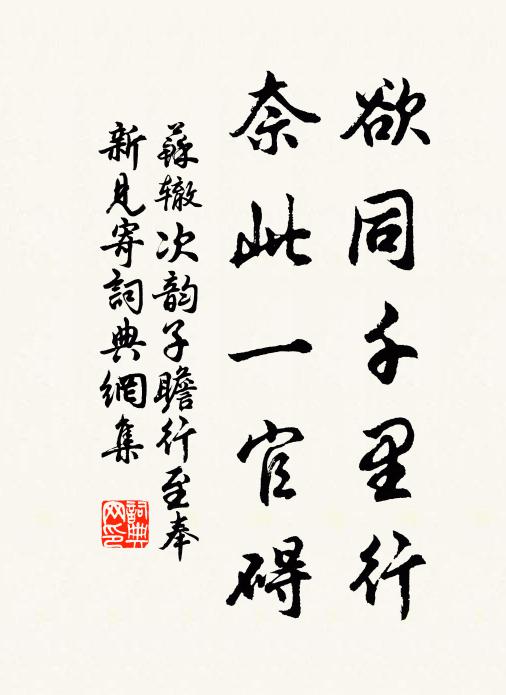 欲同千里行
奈此一官碍
蘇辙次韵子瞻行至奉
新見寄詞典網集
詞典
网印